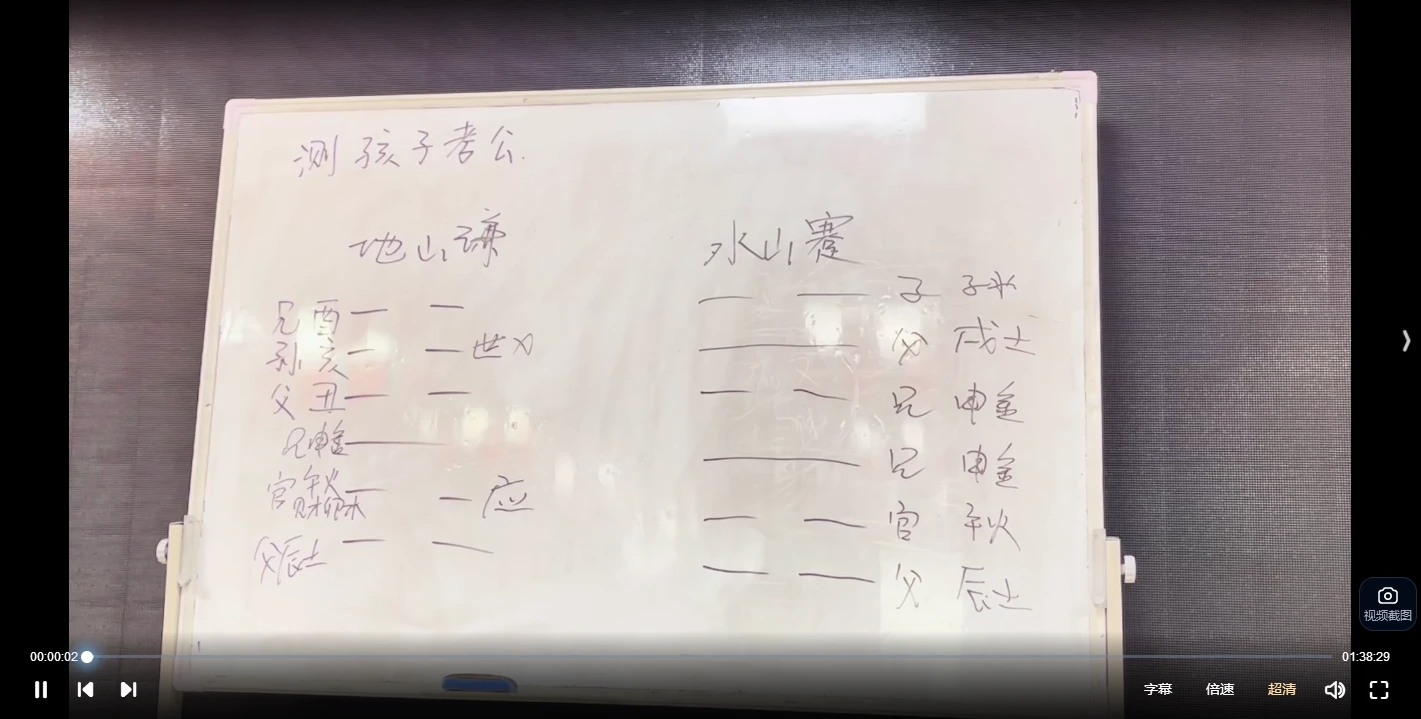 测孩子考公
地山谦
兄酉
孙亥 世 乂
父丑
兄申金
官午火 应
财卯木
父辰土
水山蹇
子 子水
父 戌土
兄 申金
兄 申金
官 午火
父 辰土
视频截图
00:00:02
01:38:29
字幕 倍速 超清